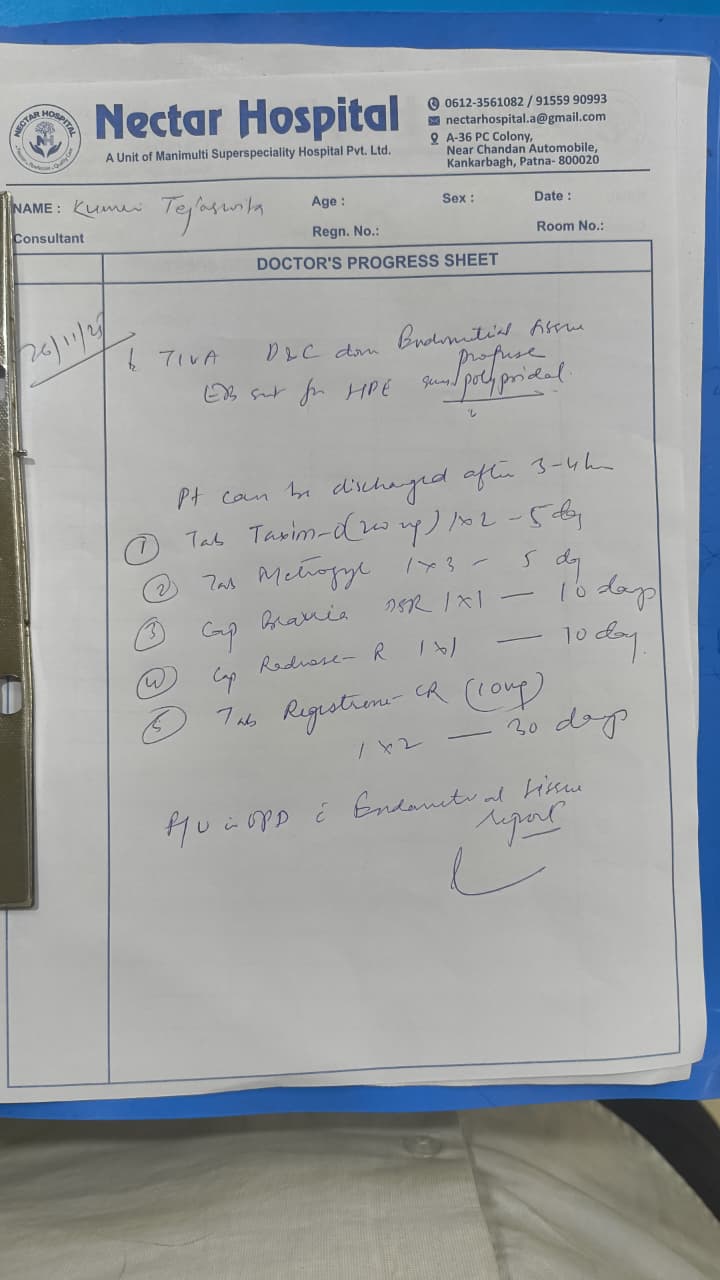 NECTAR HOSPITAL
Nectar Hospital
A Unit of Manimulti Superspeciality Hospital Pvt. Ltd.
0612-3561082 / 91559 90993
nectarhospital.a@gmail.com
A-36 PC Colony,
Near Chandan Automobile,
Kankarbagh, Patna- 800020
NAME : Kumari Tejaswita Age : Sex : Date :
Consultant Regn. No.: Room No.:
DOCTOR'S PROGRESS SHEET
26/11/25
TIVA D&C done Endometrial tissue
profuse
sent for HPE polypoidal
Pt can be discharged after 3-4 hr
① Tab Taxim-O (200 mg) 1x2 - 5 day
② Tab Metrogyl 1x3 - 5 dy
③ Cap DSR 1x1 — 10 days
④ Cap R 1x1 — 10 day.
⑤ Tab Regestrone-CR (10mg)
1x2 — 30 days
F/U in OPD c Endometrial tissue
report